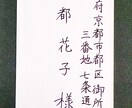 府京都市都区御所
三番地七条通
都花子様